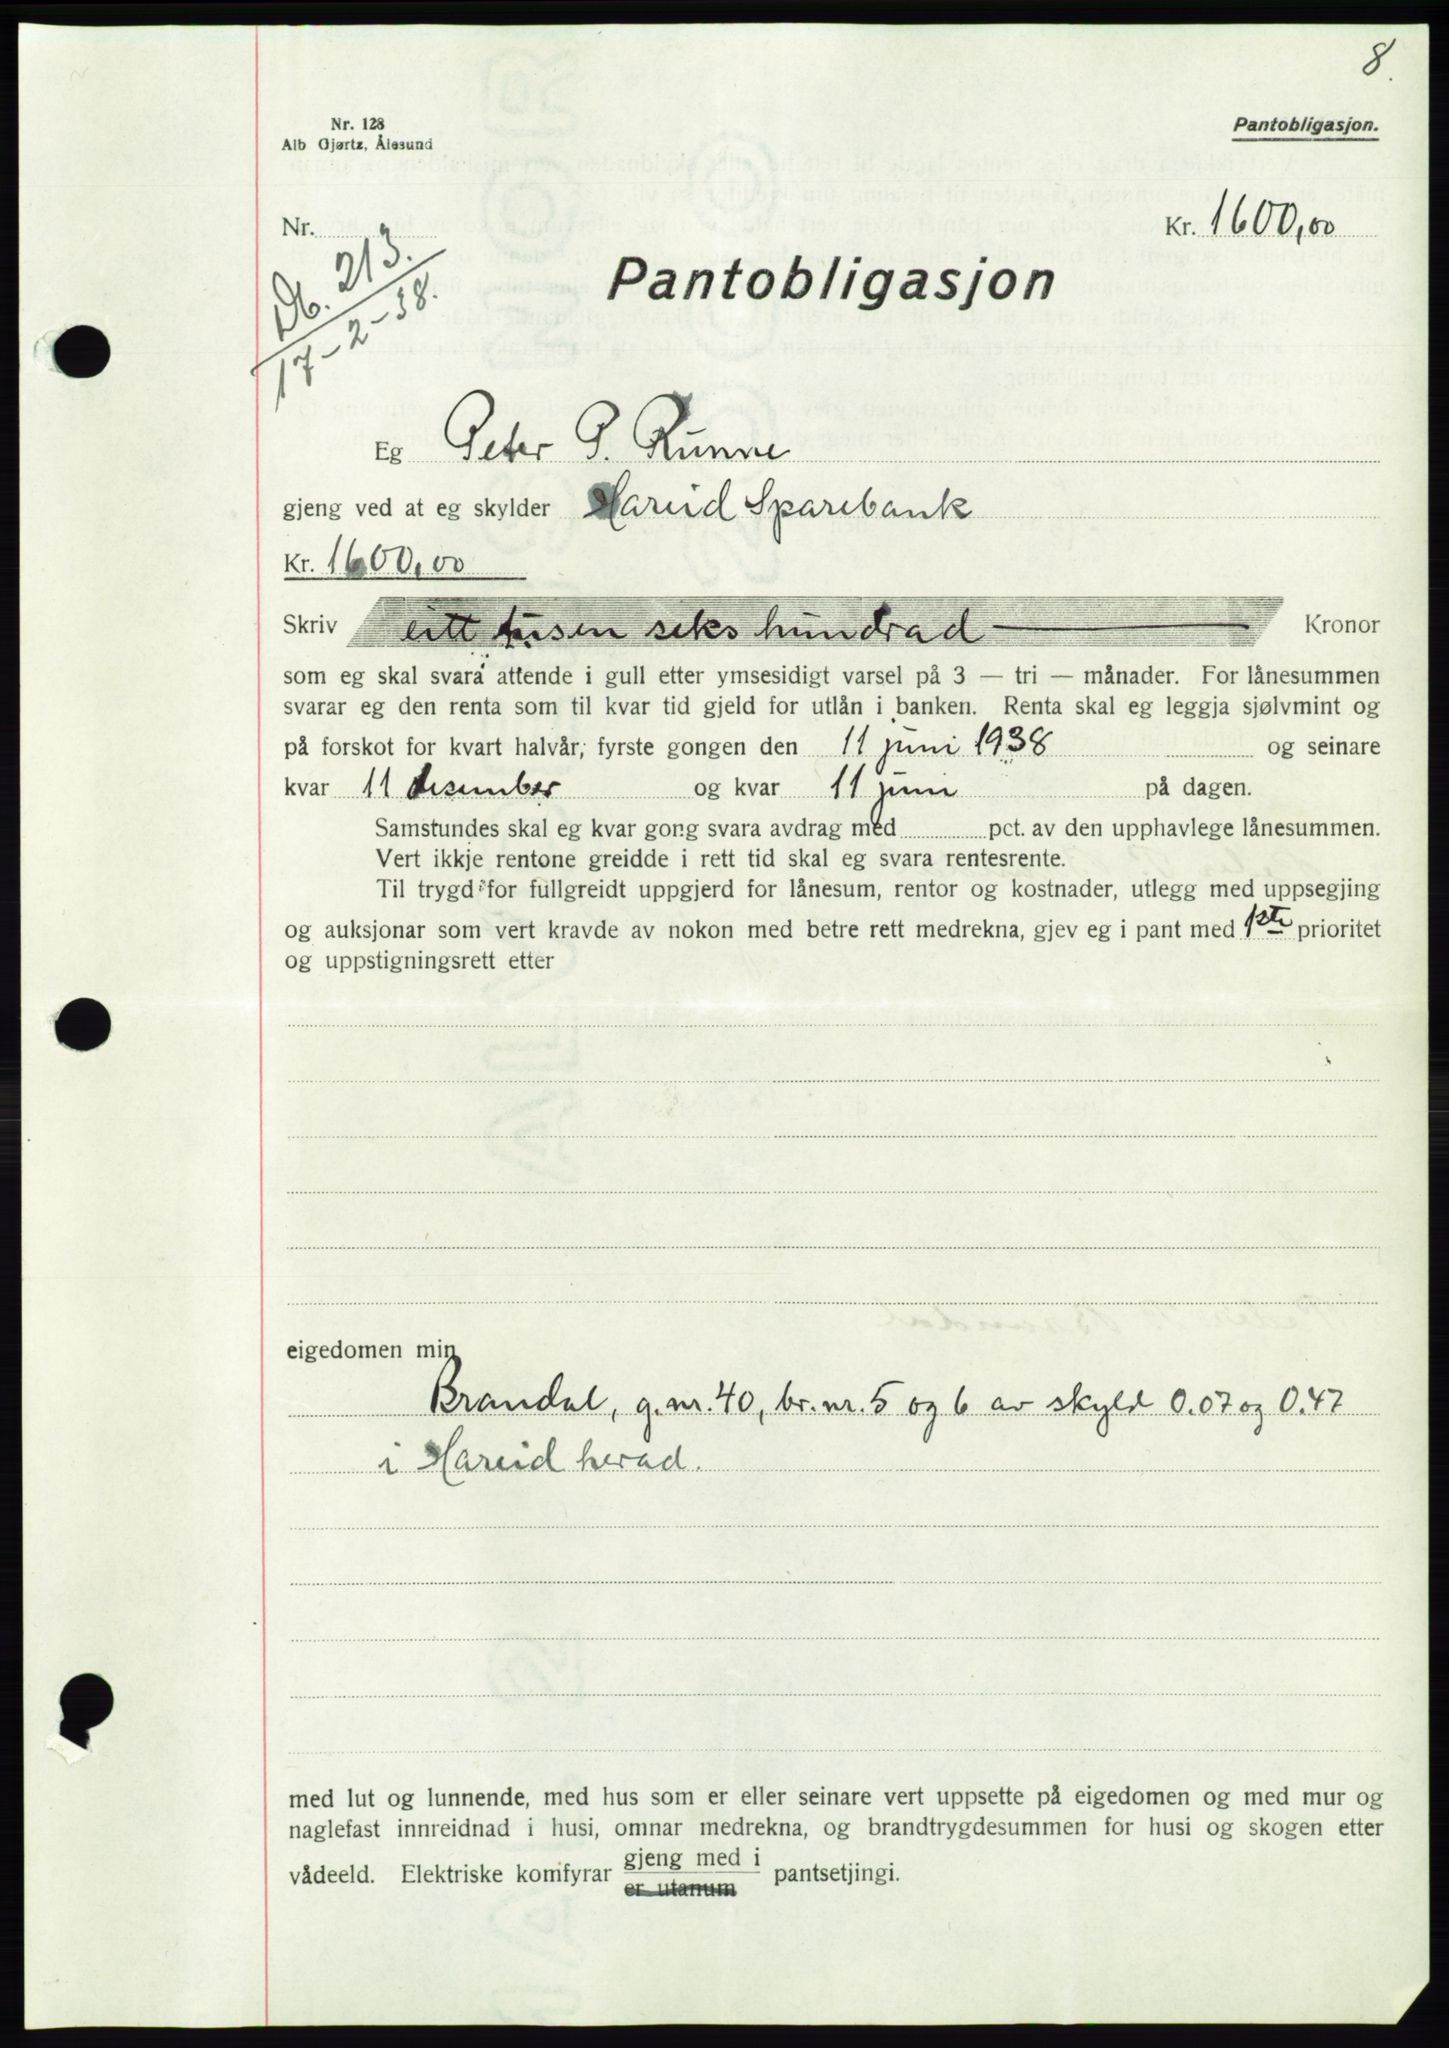 8.
Nr. 128
Alb Gjørtz, Ålesund
Pantobligasjon.
Nr.
Kr. 1600,00
Db. 213.
17-2-38.
Pantobligasjon
Eg Peter P. Runne
gjeng ved at eg skylder Hareid Sparebank
Kr. 1600,00
Skriv eitt tusen seks hundrad Kronor
som eg skal svara attende i gull etter ymsesidigt varsel på 3 — tri — månader. For lånesummen
svarar eg den renta som til kvar tid gjeld for utlån i banken. Renta skal eg leggja sjølvmint og
på forskot for kvart halvår, fyrste gongen den 11 juni 1938 og seinare
kvar 11 desember og kvar 11 juni på dagen.
Samstundes skal eg kvar gong svara avdrag med pct. av den upphavlege lånesummen.
Vert ikkje rentone greidde i rett tid skal eg svara rentesrente.
Til trygd for fullgreidt uppgjerd for lånesum, rentor og kostnader, utlegg med uppsegjing
og auksjonar som vert kravde av nokon med betre rett medrekna, gjev eg i pant med 1ste prioritet
og uppstigningsrett etter
eigedomen min
Brandal, g.nr. 40, br.nr. 5 og 6 av skyld 0.07 og 0.47
i Hareid herad.
med lut og lunnende, med hus som er eller seinare vert uppsette på eigedomen og med mur og
naglefast innreidnad i husi, omnar medrekna, og brandtrygdesummen for husi og skogen etter
vådeeld. Elektriske komfyrar gjeng med i er utanum pantsetjingi.